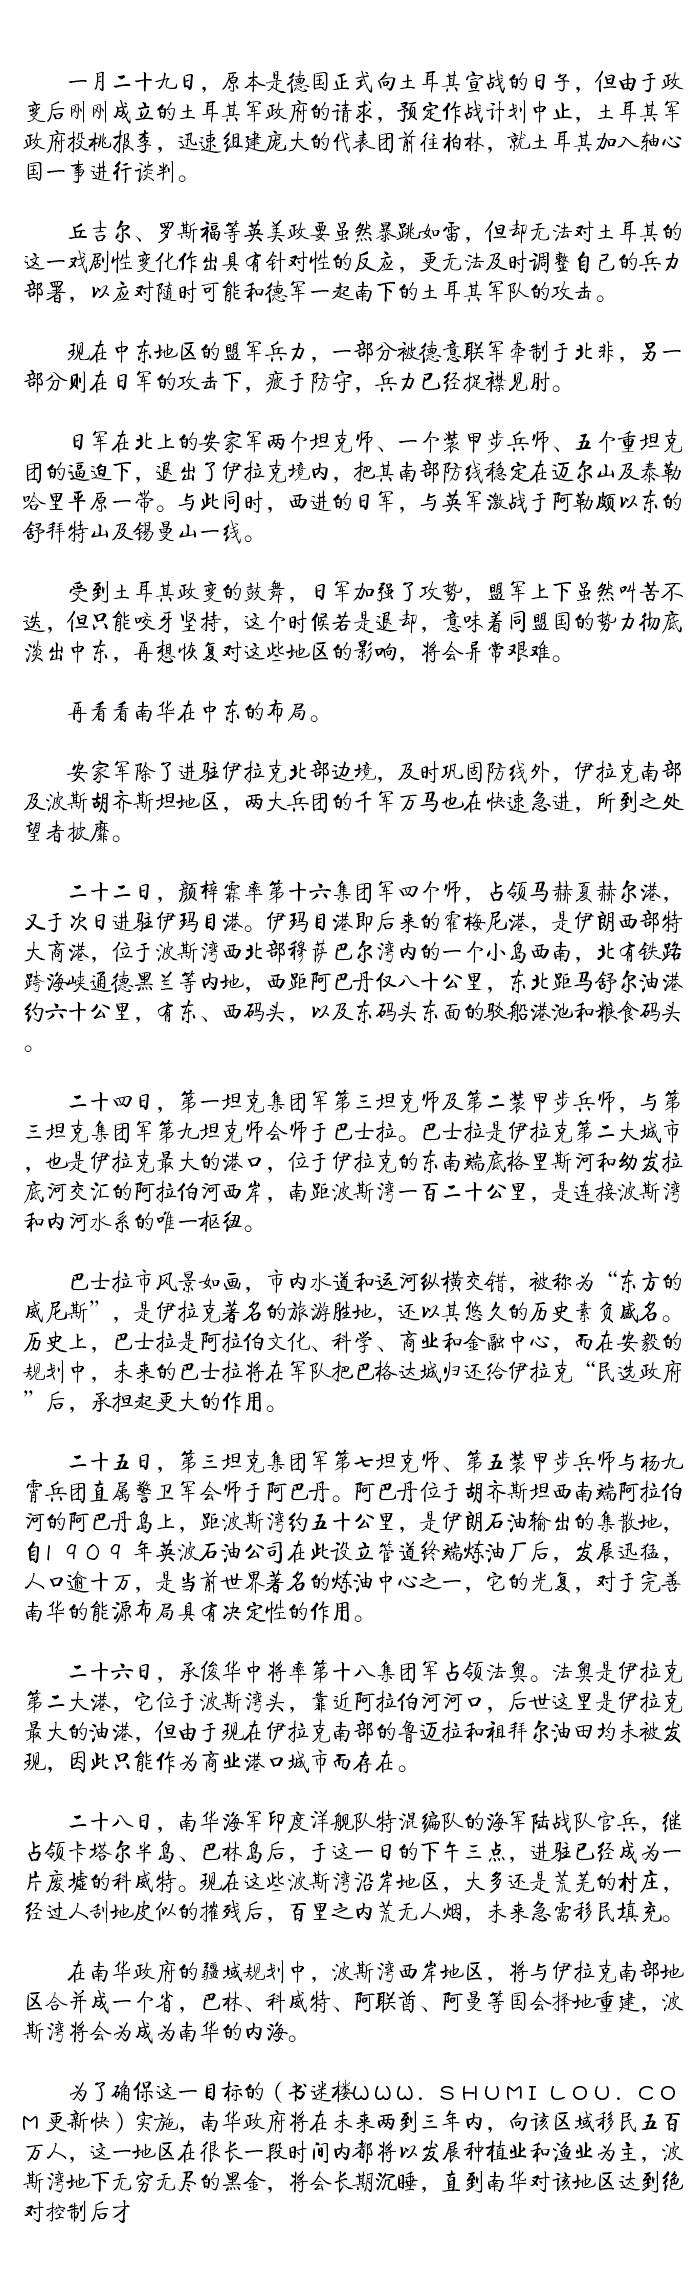 一月二十九日，原本是德国正式向土耳其宣战的日子，但由于政
变后刚刚成立的土耳其军政府的请求，预定作战计划中止，土耳其军
政府投桃报李，迅速组建庞大的代表团前往柏林，就土耳其加入轴心
国一事进行谈判。
丘吉尔、罗斯福等英美政要虽然暴跳如雷，但却无法对土耳其的
这一戏剧性变化作出具有针对性的反应，更无法及时调整自己的兵力
部署，以应对随时可能和德军一起南下的土耳其军队的攻击。
现在中东地区的盟军兵力，一部分被德意联军牵制于北非，另一
部分则在日军的攻击下，疲于防守，兵力已经捉襟见肘。
日军在北上的安家军两个坦克师、一个装甲步兵师、五个重坦克
团的逼迫下，退出了伊拉克境内，把其南部防线稳定在迈尔山及泰勒
哈里平原一带。与此同时，西进的日军，与英军激战于阿勒颇以东的
舒拜特山及锡曼山一线。
受到土耳其政变的鼓舞，日军加强了攻势，盟军上下虽然叫苦不
迭，但只能咬牙坚持，这个时候若是退却，意味着同盟国的势力彻底
淡出中东，再想恢复对这些地区的影响，将会异常艰难。
再看看南华在中东的布局。
安家军除了进驻伊拉克北部边境，及时巩固防线外，伊拉克南部
及波斯胡齐斯坦地区，两大兵团的千军万马也在快速急进，所到之处
望者披靡。
二十二日，颜梓霖率第十六集团军四个师，占领马赫夏赫尔港，
又于次日进驻伊玛目港。伊玛目港即后来的霍梅尼港，是伊朗西部特
大商港，位于波斯湾西北部穆萨巴尔湾内的一个小岛西南，北有铁路
跨海峡通德黑兰等内地，西距阿巴丹仅八十公里，东北距马舒尔油港
约六十公里，有东、西码头，以及东码头东面的驳船港池和粮食码头
。
二十四日，第一坦克集团军第三坦克师及第二装甲步兵师，与第
三坦克集团军第九坦克师会师于巴士拉。巴士拉是伊拉克第二大城市
，也是伊拉克最大的港口，位于伊拉克的东南端底格里斯河和幼发拉
底河交汇的阿拉伯河西岸，南距波斯湾一百二十公里，是连接波斯湾
和内河水系的唯一枢纽。
巴士拉市风景如画，市内水道和运河纵横交错，被称为“东方的
威尼斯”，是伊拉克著名的旅游胜地，还以其悠久的历史素负盛名。
历史上，巴士拉是阿拉伯文化、科学、商业和金融中心，而在安毅的
规划中，未来的巴士拉将在军队把巴格达城归还给伊拉克“民选政府
”后，承担起更大的作用。
二十五日，第三坦克集团军第七坦克师、第五装甲步兵师与杨九
霄兵团直属警卫军会师于阿巴丹。阿巴丹位于胡齐斯坦西南端阿拉伯
河的阿巴丹岛上，距波斯湾约五十公里，是伊朗石油输出的集散地，
自1909年英波石油公司在此设立管道终端炼油厂后，发展迅猛，
人口逾十万，是当前世界著名的炼油中心之一，它的光复，对于完善
南华的能源布局具有决定性的作用。
二十六日，承俊华中将率第十八集团军占领法奥。法奥是伊拉克
第二大港，它位于波斯湾头，靠近阿拉伯河河口，后世这里是伊拉克
最大的油港，但由于现在伊拉克南部的鲁迈拉和祖拜尔油田均未被发
现，因此只能作为商业港口城市而存在。
二十八日，南华海军印度洋舰队特混编队的海军陆战队官兵，继
占领卡塔尔半岛、巴林岛后，于这一日的下午三点，进驻已经成为一
片废墟的科威特。现在这些波斯湾沿岸地区，大多还是荒芜的村庄，
经过人刮地皮似的摧残后，百里之内荒无人烟，未来急需移民填充。
在南华政府的疆域规划中，波斯湾西岸地区，将与伊拉克南部地
区合并成一个省，巴林、科威特、阿联酋、阿曼等国会择地重建，波
斯湾将会为成为南华的内海。
为了确保这一目标的（书迷楼WWW.SHUMILOU.CO
M更新快）实施，南华政府将在未来两到三年内，向该区域移民五百
万人，这一地区在很长一段时间内都将以发展种植业和渔业为主，波
斯湾地下无穷无尽的黑金，将会长期沉睡，直到南华对该地区达到绝
对控制后才